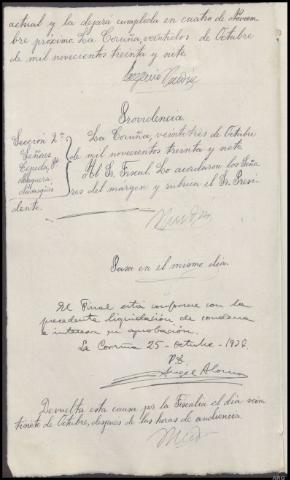 actual y la dejará cumplida en cuatro de Noviem-
bre próximo. La Coruña, veintidos de Octubre
de mil novecientos treinta y siete
Eugenio
Providencia
Sección 2ª
Señores
Cejudo, Pte
La Coruña, veintitres de Octubre
de mil novecientos treinta y siete
Al Sr. Fiscal. Lo acordaron los Seño-
res del margen y rubrica el Sr. Presi-
dente.
Pasa en el mismo dia.
El Fiscal está conforme con la
precedente liquidación de condena
e interesa su aprobación.
La Coruña 25 - Octubre - 193
Angel Alonso
Devuelta esta causa por la Fiscalia el dia vein
tisiete de Octubre, despues de las horas de audiencia.